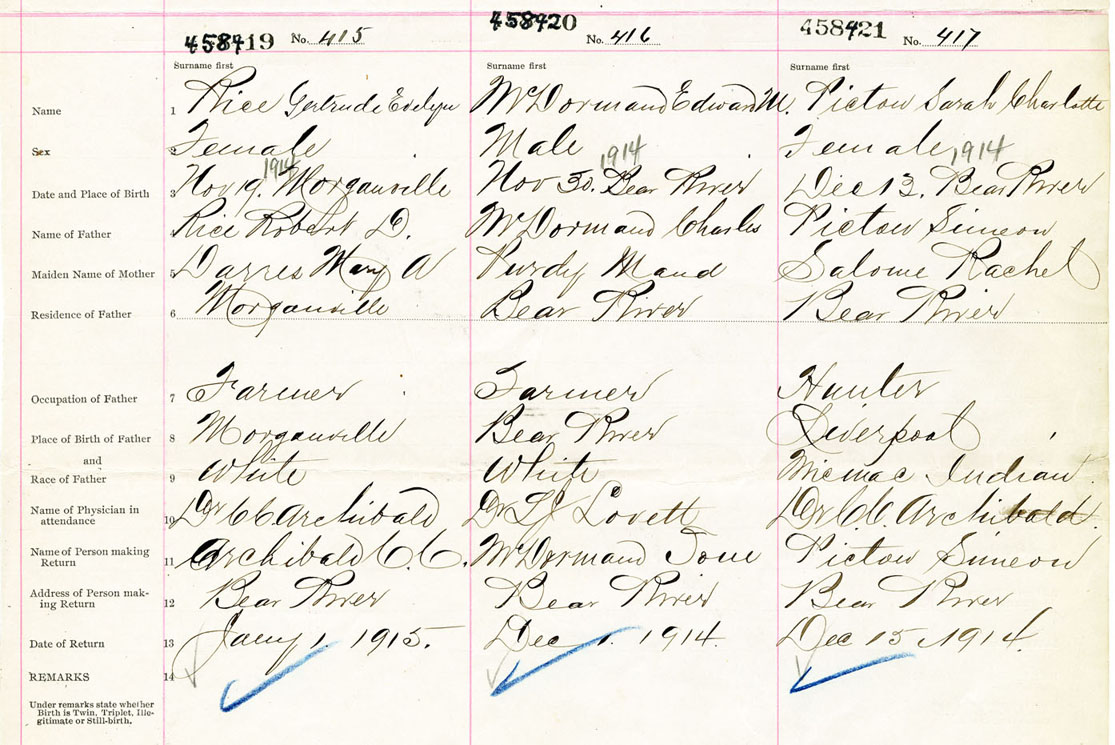 458419 No. 415 458420 No. 416 458421 No. 417
Surname first Surname first Surname first
Name 1 Rice Gertrude Evelyn McDormand Edward M. Pictou Sarah Charlotte
Sex 2 Female Male Female
1914 1914 1914
Date and Place of Birth 3 Nov 19. Morganville Nov 30. Bear River Dec 13. Bear River
Name of Father 4 Rice Robert D. McDormand Charles Pictou Simeon
Maiden Name of Mother 5 Darres Mary A Purdy Maud Salome Rachel
Residence of Father 6 Morganville Bear River Bear River
Occupation of Father 7 Farmer Farmer Hunter
Place of Birth of Father 8 Morganville Bear River Liverpool
and
Race of Father 9 White White Micmac Indian
Name of Physician in
attendance 10 Dr CC Archibald Dr LJ Lovett Dr C.C. Archibald.
Name of Person making
Return 11 Archibald C.C. McDormand Pictou Simeon
Address of Person mak-
ing Return 12 Bear River Bear River Bear River
Date of Return 13 Jany 1. 1915. Dec 1. 1914. Dec 15, 1914.
REMARKS 14
Under remarks state whether
Birth is Twin, Triplet, Ille-
gitimate or Still-birth.